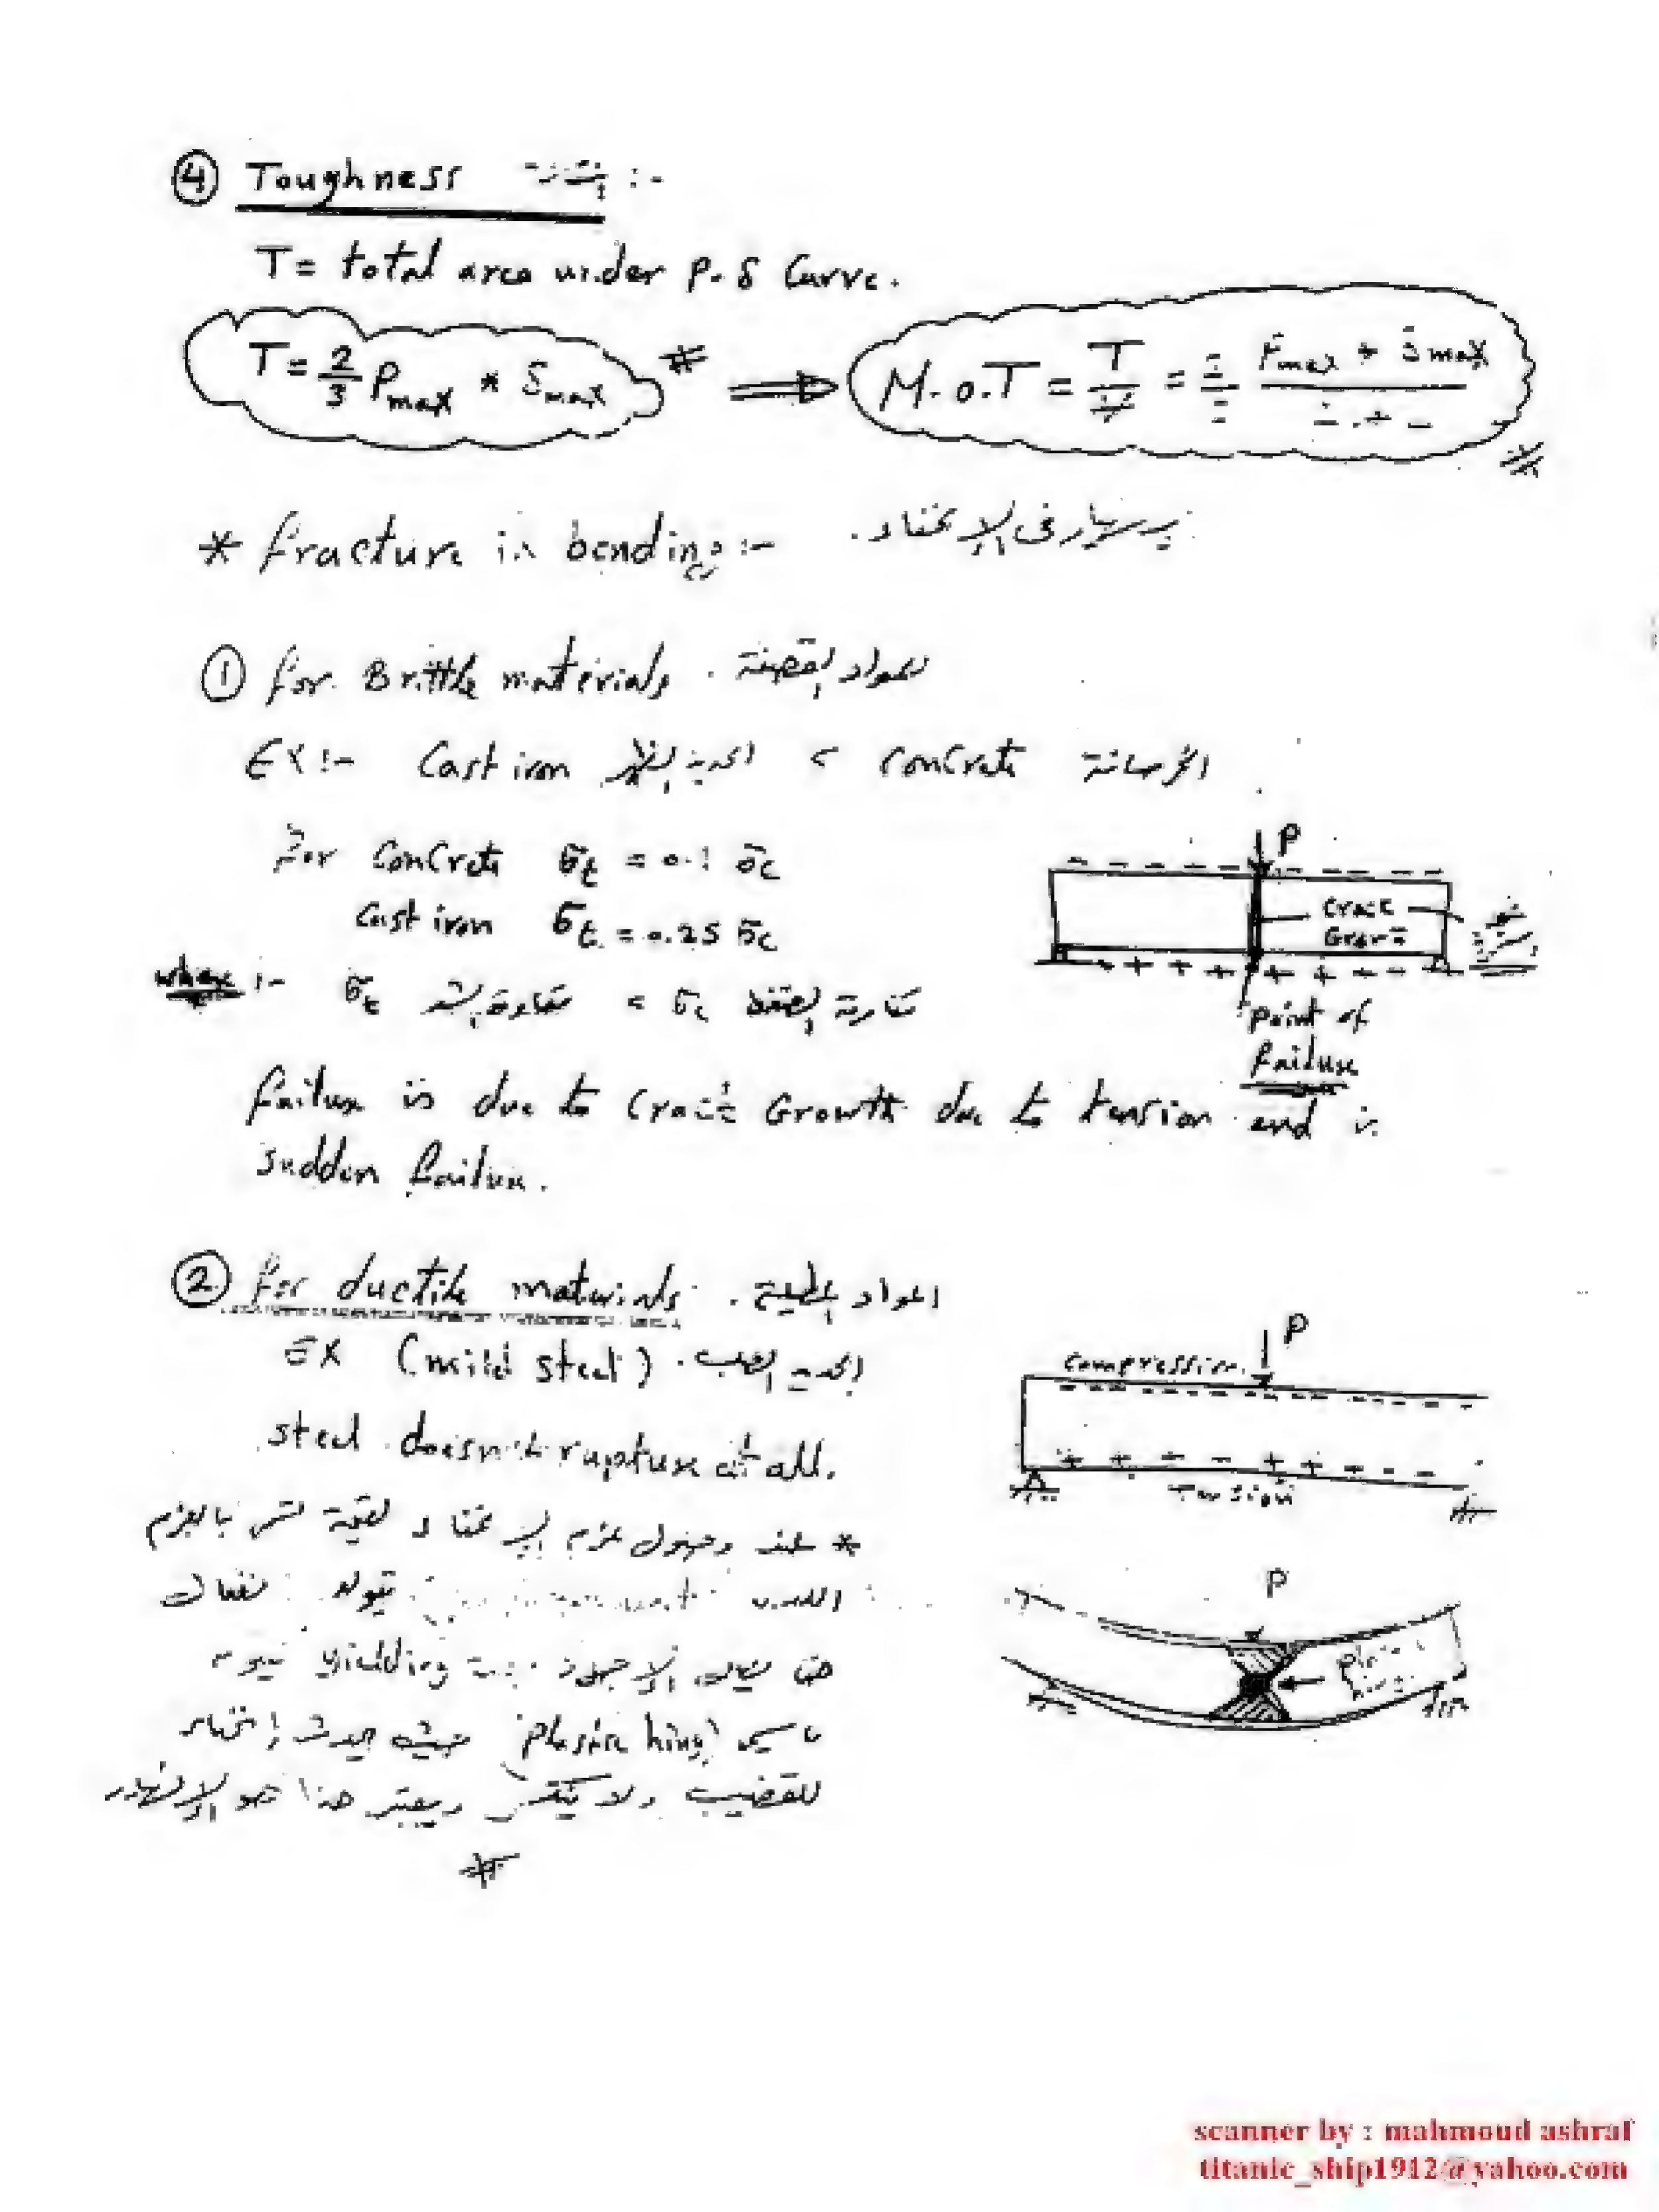 ④ Toughness :-
T = total area under P-δ Curve.
T = 2/3 Pmax * δmax # ⟹ M.o.T = T/V = Pmax * δmax #
* fracture in bending :- في الإنحناء.
① for Brittle materials . للمواد القصفة
EX :- Cast iron الحديد الزهر , concrete الخرسانة
For Concrete σt = 0.1 σc
Cast iron σt = 0.25 σc
where :- σt مقاومة الشد , σc مقاومة الضغط
P
Crack
Growth
Point of
failure
failure is due to Crack Growth due to tension and is
sudden failure.
② for ductile materials . المواد المطيلة
EX (mild steel) . الحديد الصلب
steel doesn't rupture at all.
P
compression
tension
* عند وصول عزم الإنحناء لقيمة تسمى بالعزم
اللدن
yielding
plastic hinge حيث يحدث إنحناء
للقضيب ولا ينكسر ويعتبر هذا هو الإنهيار
#
P
plastic
hinge
scanner by : mahmoud ashraf
titanic_ship1912@yahoo.com